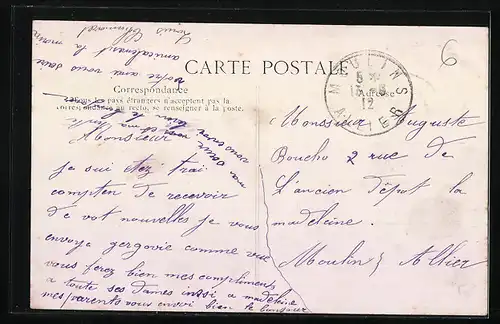 CARTE POSTALE
Correspondance
Tous les pays étrangers n'acceptent pas la
correspondance au recto, se renseigner à la poste.
MOULINS
ALLIER
5
12
6
Monsieur Auguste
Boucho 2 rue de
L'ancien dépot la
madeleine.
Moulins Allier
Monsieur
je sui
compten de recevoir
de vot nouvelles je vous
envoye gergovie comme vue
vous ferez bien mes compliments
a toute ses dames insi a madeleine
mes parents vous envoi bien le bonjour
votre ami vous serre
amicalement la main
Louis